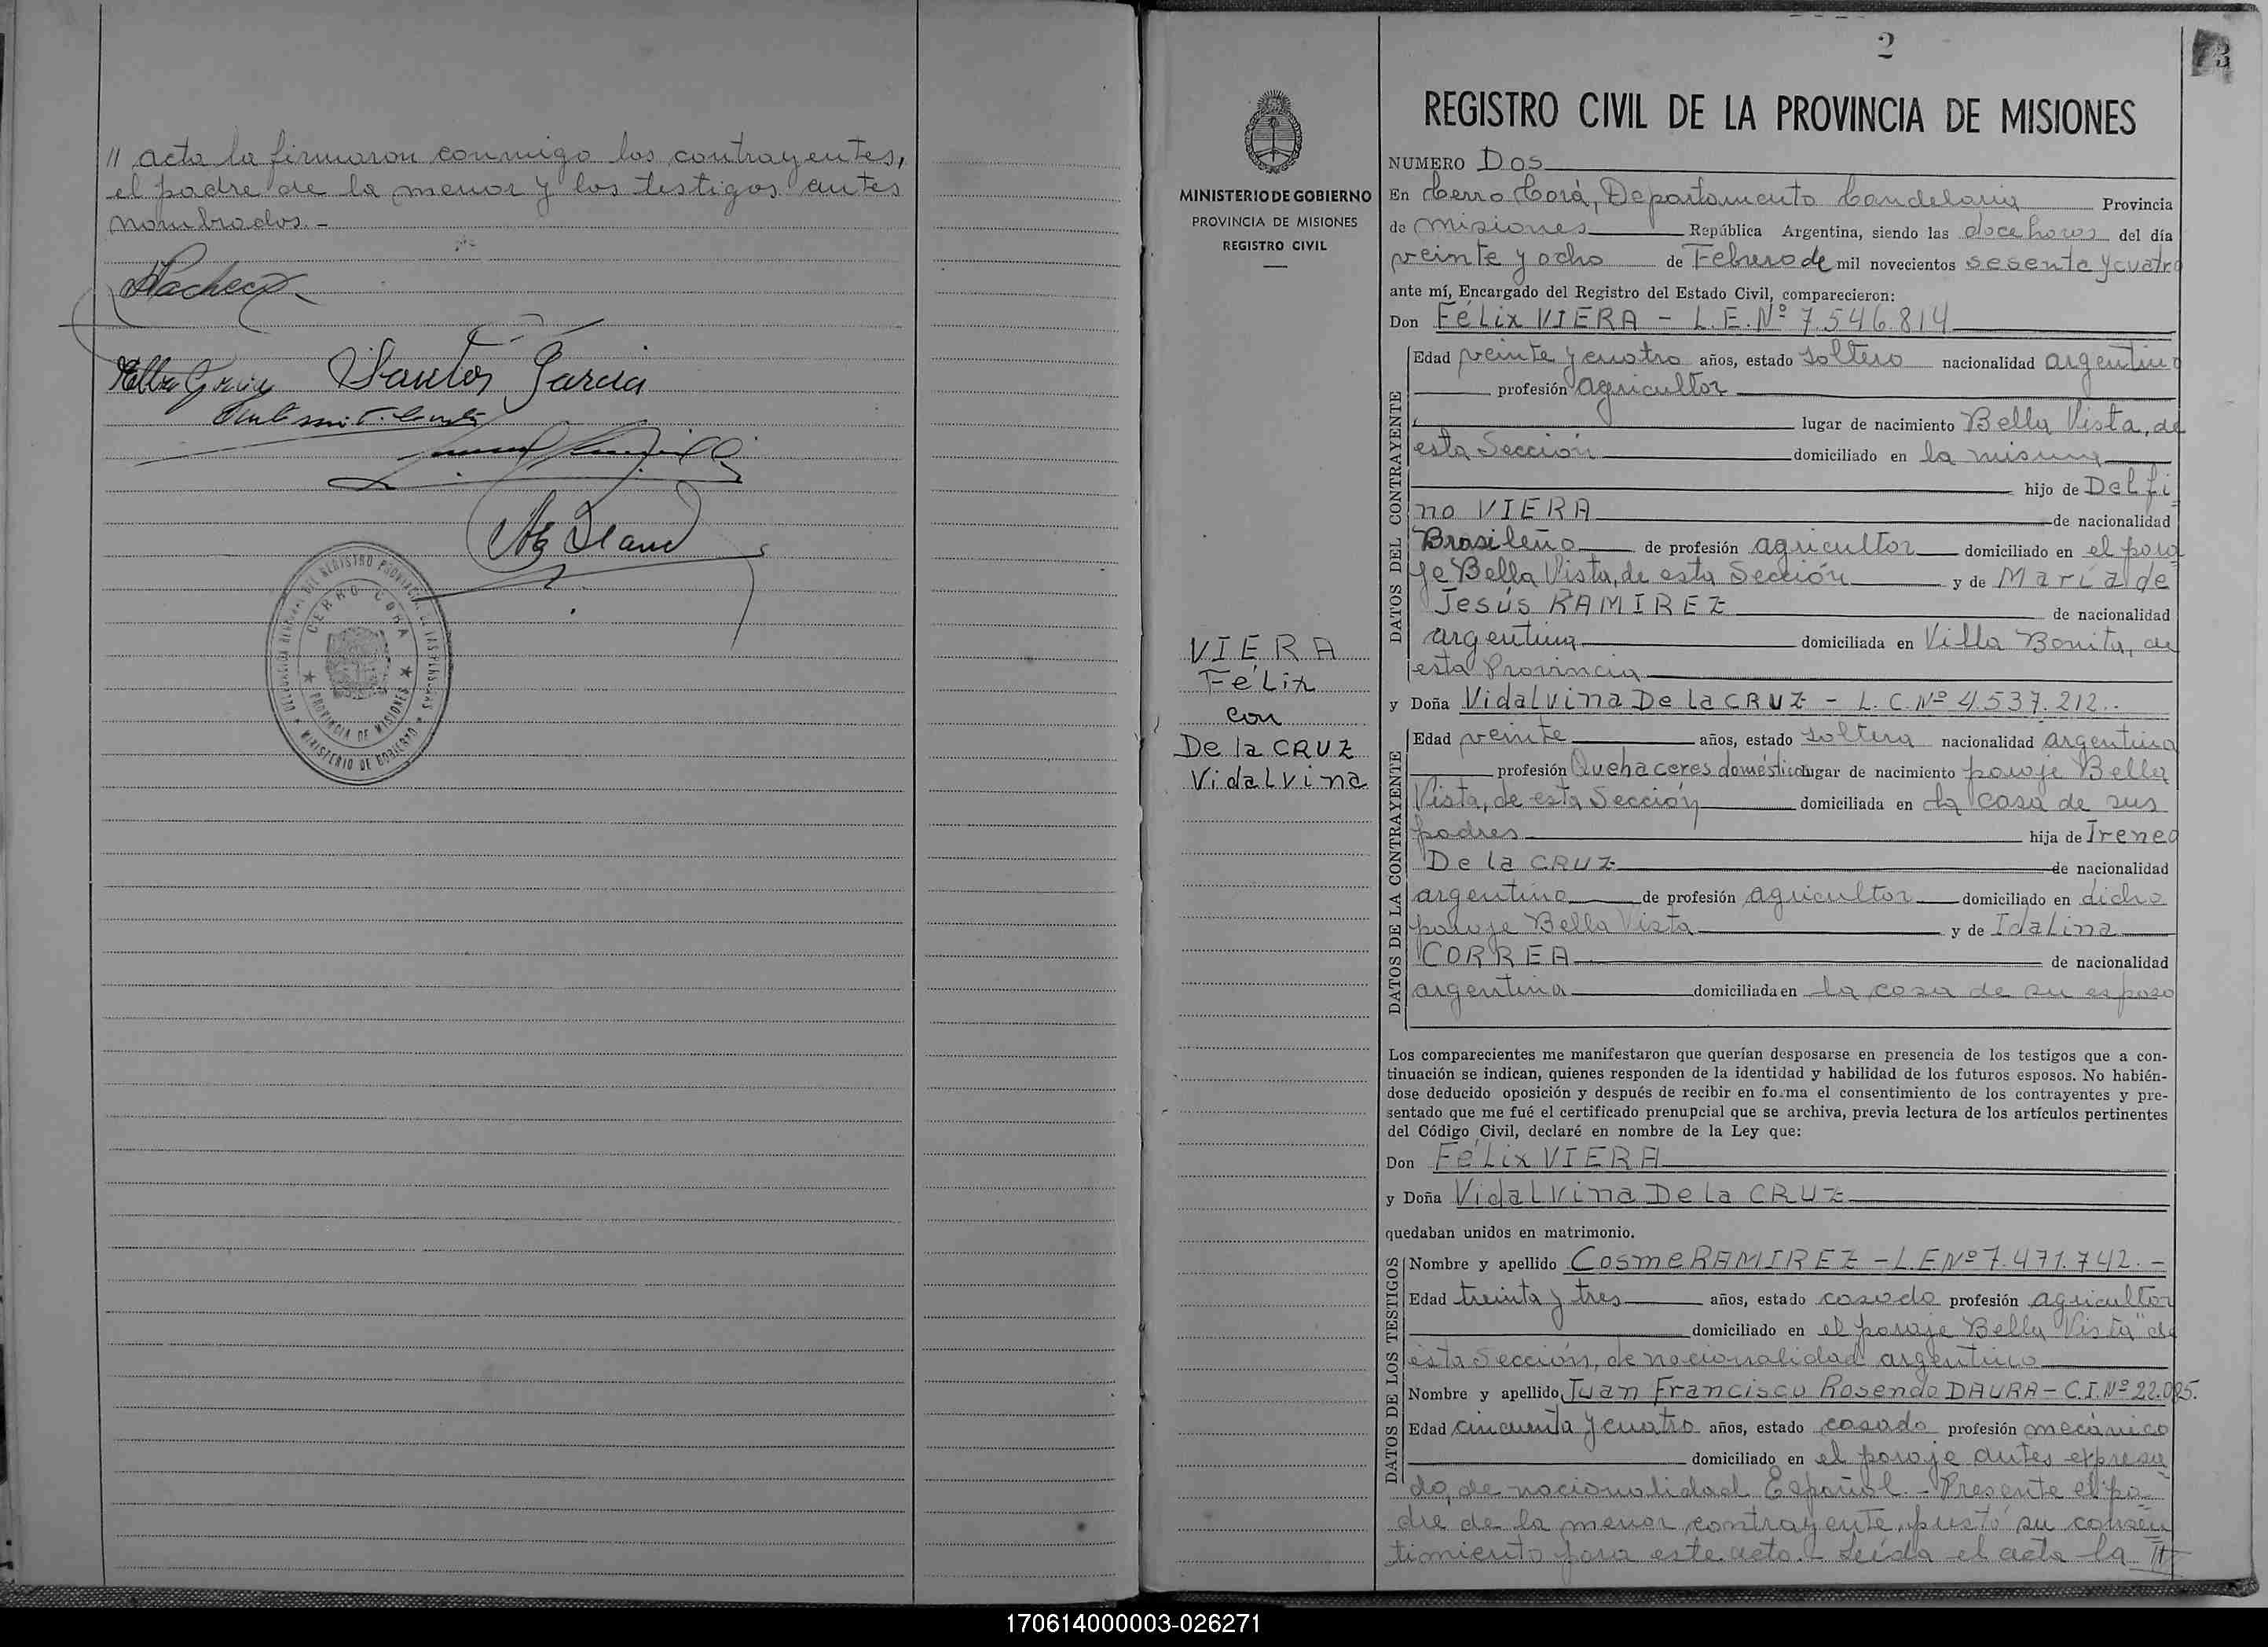 // acta la firmaron conmigo los contrayentes,
el padre de la menor y los testigos antes
nombrados.-
Pacheco
Santos Garcia
DELEGACIÓN DEL REGISTRO PROVINCIAL DE LAS PERSONAS
★ MINISTERIO DE GOBIERNO ★
CERRO CORA
★ PROVINCIA DE MISIONES ★
MINISTERIO DE GOBIERNO
PROVINCIA DE MISIONES
REGISTRO CIVIL
VIERA
Félix
con
De la CRUZ
Vidalvina
2
3
REGISTRO CIVIL DE LA PROVINCIA DE MISIONES
NUMERO Dos
En Cerro Corá, Departamento Candelaria Provincia
de Misiones República Argentina, siendo las doce horas del día
veinte y ocho de Febrero de mil novecientos sesenta y cuatro
ante mí, Encargado del Registro del Estado Civil, comparecieron:
Don Félix VIERA - L.E. Nº 7.546.814
DATOS DEL CONTRAYENTE
Edad veinte y cuatro años, estado soltero nacionalidad argentino
profesión agricultor
lugar de nacimiento Bella Vista, de
esta Sección domiciliado en la misma
hijo de Delfi
no VIERA de nacionalidad
Brasileño de profesión agricultor domiciliado en el para
je Bella Vista, de esta Sección y de María de
Jesús RAMIREZ de nacionalidad
argentina domiciliada en Villa Bonita, de
esta Provincia
y Doña Vidalvina De la CRUZ - L.C. Nº 4.537.212..
DATOS DE LA CONTRAYENTE
Edad veinte años, estado soltera nacionalidad argentina
profesión Quehaceres domésticos lugar de nacimiento paraje Bella
Vista, de esta Sección domiciliada en la casa de sus
padres hija de Ireneo
De la CRUZ de nacionalidad
argentino de profesión agricultor domiciliado en dicho
paraje Bella Vista y de Idalina
CORREA de nacionalidad
argentina domiciliada en la casa de su esposo
Los comparecientes me manifestaron que querían desposarse en presencia de los testigos que a con-
tinuación se indican, quienes responden de la identidad y habilidad de los futuros esposos. No habién-
dose deducido oposición y después de recibir en forma el consentimiento de los contrayentes y pre-
sentado que me fué el certificado prenupcial que se archiva, previa lectura de los artículos pertinentes
del Código Civil, declaré en nombre de la Ley que:
Don Félix VIERA
y Doña Vidalvina De la CRUZ
quedaban unidos en matrimonio.
DATOS DE LOS TESTIGOS
Nombre y apellido Cosme RAMIREZ - L.E Nº 7.471.742.-
Edad treinta y tres años, estado casado profesión agricultor
domiciliado en el paraje Bella Vista" de
esta Sección, de nacionalidad argentino
Nombre y apellido Juan Francisco Rosendo DAURA - C.I. Nº 22.095.
Edad cincuenta y cuatro años, estado casado profesión mecánico
domiciliado en el paraje antes expresa
do, de nacionalidad Español.- Presente el pa-
dre de la menor contrayente, prestó su consen
timiento para este acto.- Leída el acta la //
170614000003-026271